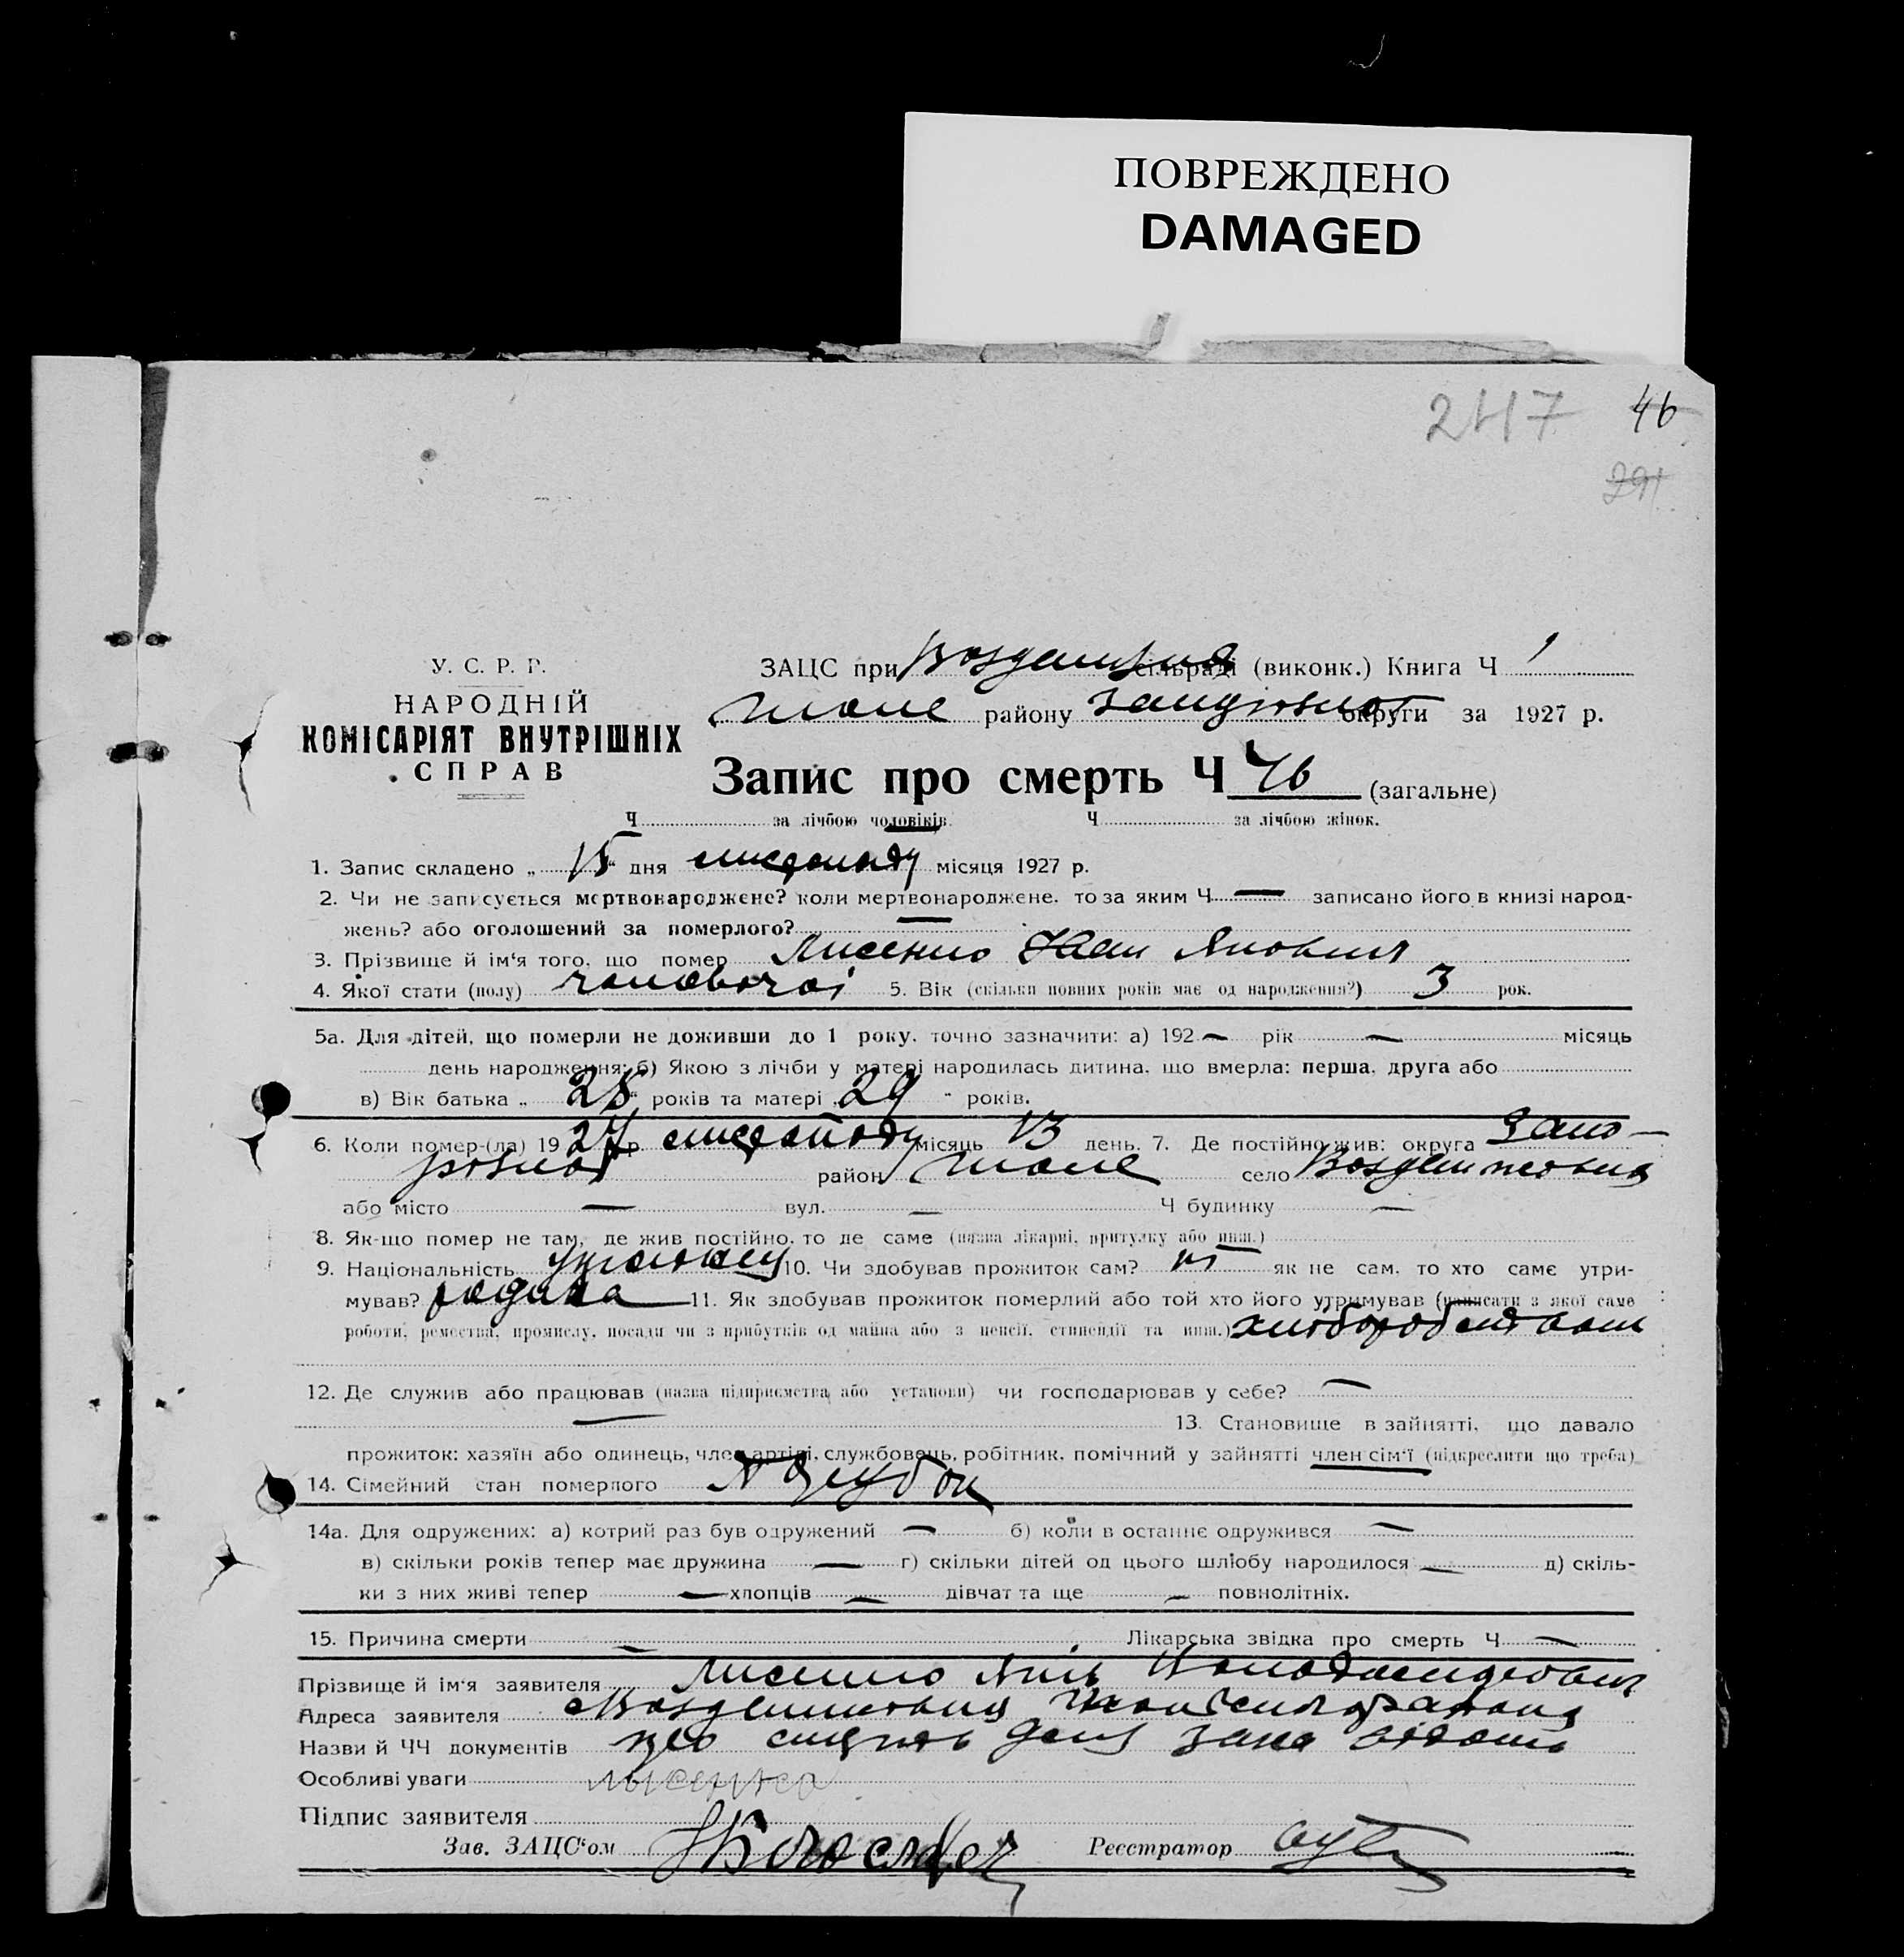 ПОВРЕЖДЕНО
DAMAGED
247 46
291
У. С. Р. Р.
НАРОДНІЙ
КОМІСАРІЯТ ВНУТРІШНІХ
СПРАВ
ЗАЦС при сільраді (виконк.) Книга Ч 1
району округи за 1927 р.
Запис про смерть Ч 46 (загальне)
Ч за лічбою чоловіків. Ч за лічбою жінок.
1. Запис складено „ 15 “ дня листопаду місяця 1927 р.
2. Чи не записується мертвонароджене? коли мертвонароджене. то за яким Ч — записано його в книзі народ-
жень? або оголошений за померлого? —
3. Прізвище й ім‘я того, що помер Лисенко Іван Якович
4. Якої стати (полу) чоловічої 5. Вік (скільки повних років має од народження?) 3 рок.
5а. Для дітей, що померли не доживши до 1 року. точно зазначити: а) 192 — рік — місяць
день народження: б) Якою з лічби у матері народилась дитина, що вмерла: перша, друга або
в) Вік батька „ 28 “ років та матері „ 29 “ років.
6. Коли помер-(ла) 19 27 р. листопаду місяць 13 день. 7. Де постійно жив: округа Запо-
ріжної район село Воздвижовка
або місто — вул. — Ч будинку —
8. Як-що помер не там, де жив постійно. то де саме (назва лікарні, притулку або инш.)
9. Національність 10. Чи здобував прожиток сам? ні як не сам. то хто саме утри-
мував? родина 11. Як здобував прожиток померлий або той хто його утримував (написати з якої саме
роботи, ремества, промислу, посади чи з прибутків од майна або з пенсії, стипендії та инш.)
12. Де служив або працював (назва підприємства або установи) чи господарював у себе? —
— 13. Становище в зайнятті, що давало
прожиток: хазяїн або одинець, член артілі, службовець, робітник, помічний у зайнятті член сім‘ї (підкреслити що треба)
14. Сімейний стан померлого
14а. Для одружених: а) котрий раз був одружений — б) коли в останнє одружився —
в) скільки років тепер має дружина — г) скільки дітей од цього шлюбу народилося — д) скіль-
ки з них живі тепер — хлопців — дівчат та ще — повнолітніх.
15. Причина смерти — Лікарська звідка про смерть Ч —
Прізвище й ім‘я заявителя Лисенко Яків
Адреса заявителя Воздвижовка
Назви й ЧЧ документів про смерть
Особливі уваги
Підпис заявителя Лысенко
Зав. ЗАЦС‘ом Реєстратор